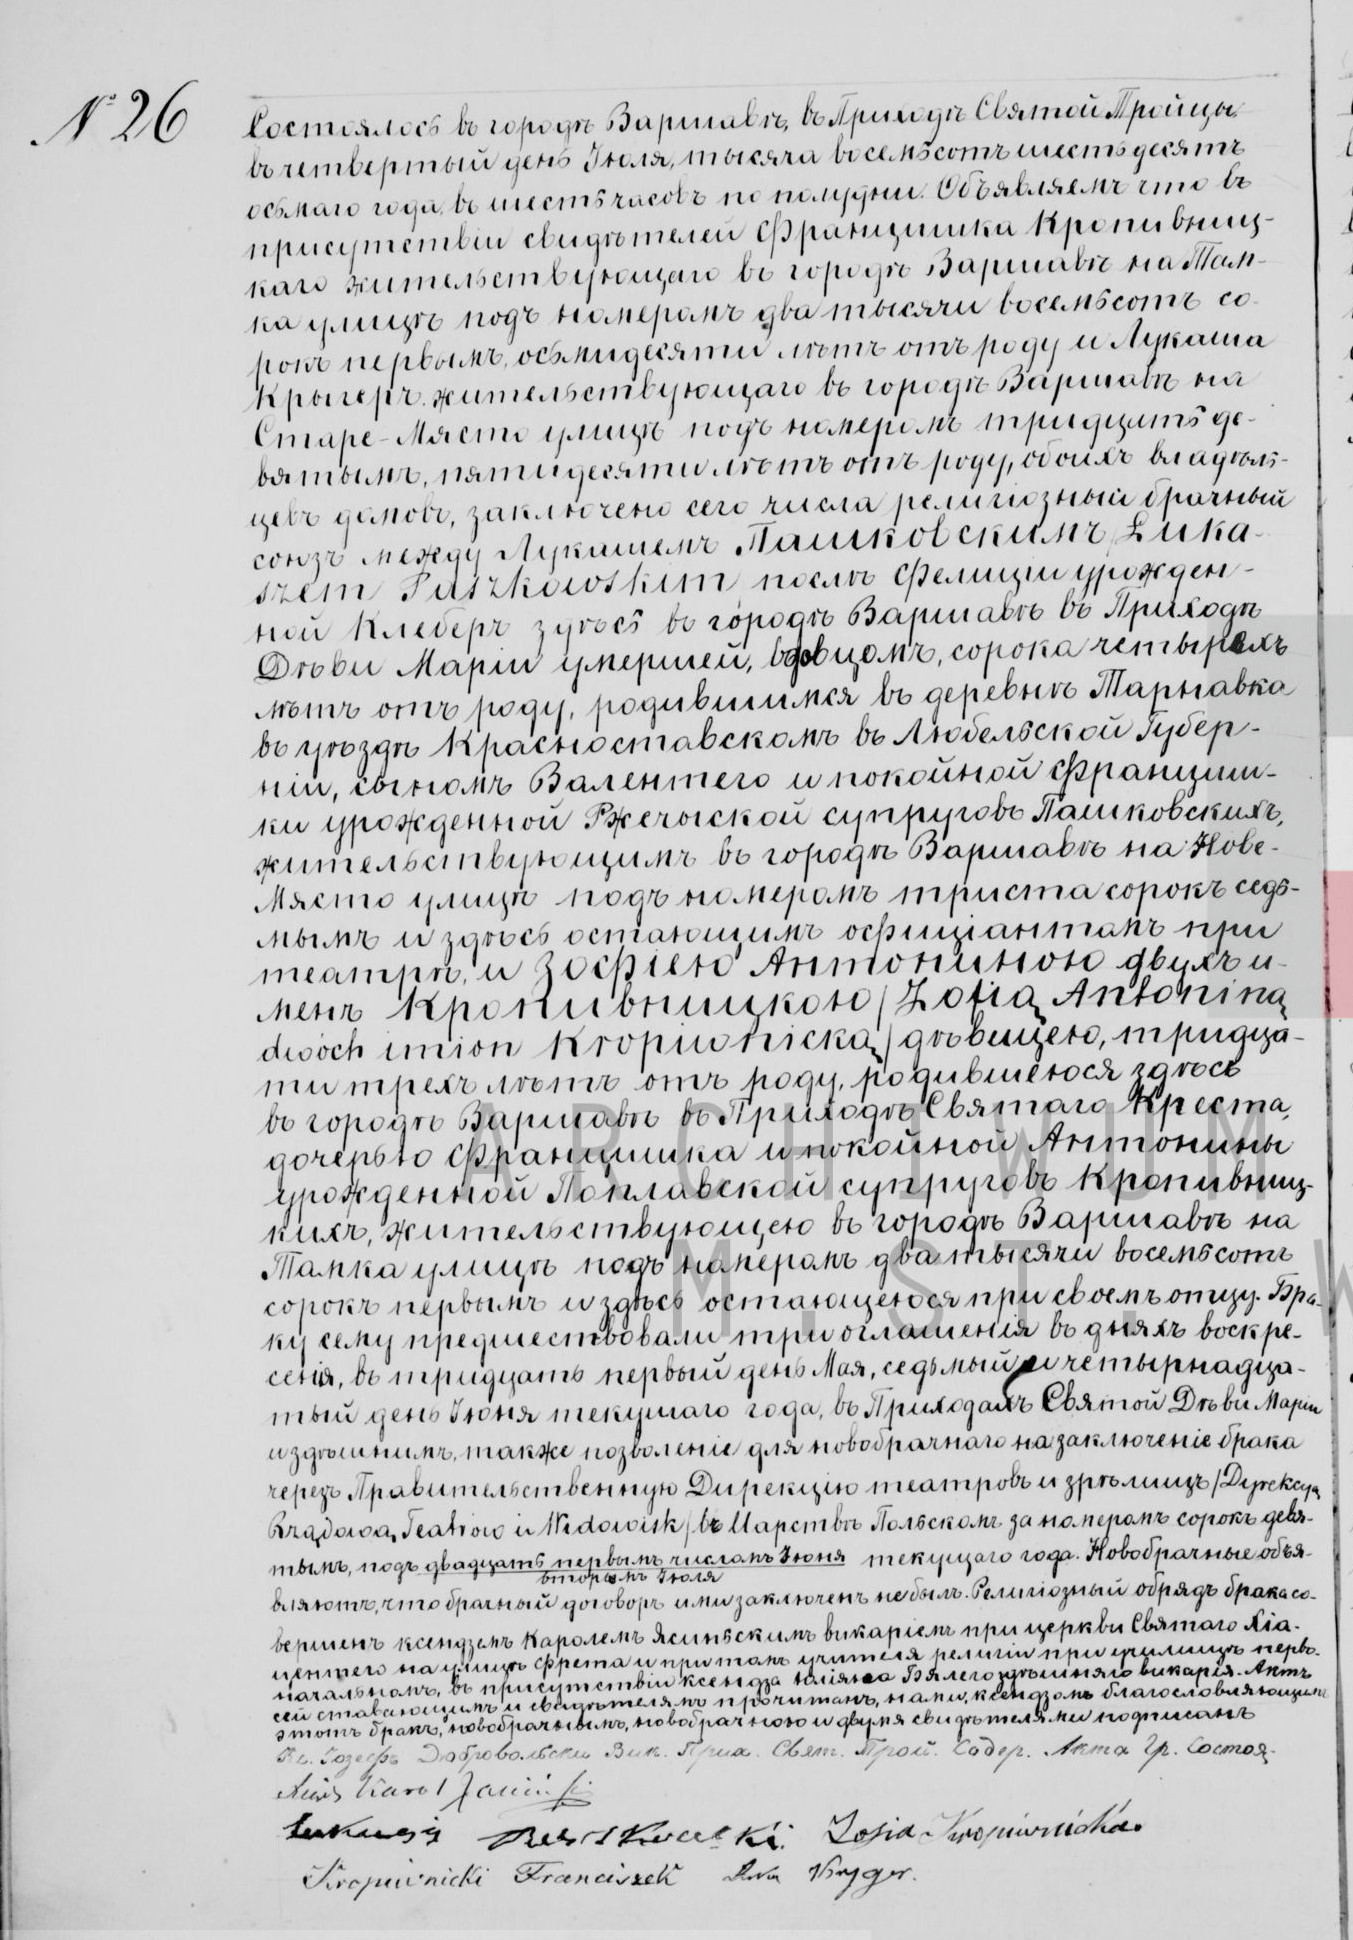 № 26
Состоялось въ городѣ Варшавѣ, въ Приходѣ Святой Тройцы
въ четвертый день Іюля, тысяча восемьсотъ шестьдесятъ
осьмаго года, въ шесть часовъ по полудни. Объявляемъ что въ
присутствіи свидѣтелей Францишка Кропивниц-
каго жительствующаго въ городѣ Варшавѣ на Там-
ка улицѣ подъ номеромъ два тысячи восемьсотъ со-
рокъ первымъ, осьмидесяти лѣтъ отъ роду и Лукаша
Крыгеръ, жительствующаго въ городѣ Варшавѣ на
Старе-Място улицѣ подъ номеромъ тридцать де-
вятымъ, пятидесяти лѣтъ отъ роду, обоихъ владѣль-
цевъ домовъ, заключено сего числа религіозный брачный
союзъ между Лукашемъ Пашковскимъ /Łuka-
szem Paszkowskim послѣ Фелиціи урожден-
ной Клеберъ здѣсь въ городѣ Варшавѣ въ Приходѣ
Дѣвы Маріи умершей, вдовцомъ, сорока четырехъ
лѣтъ отъ роду, родившимся въ деревнѣ Тарнавка
въ уѣздѣ Красноставскомъ въ Любельской Губер-
ніи, сыномъ Валентего и покойной Францишк-
ки урожденной Ржечыской супруговъ Пашковскихъ,
жительствующимъ въ городѣ Варшавѣ на Нове-
Място улицѣ подъ номеромъ триста сорокъ седь-
мымъ и здѣсь остающимъ офиціантамъ при
театрѣ, и Зофіею Антониною двухъ и-
менъ Кропивницкою /Zofią Antoniną
dwóch imion Kropiwnicką/ дѣвицею, тридца-
ти трехъ лѣтъ отъ роду, родившеюся здѣсь
въ городѣ Варшавѣ въ Приходѣ Святаго Креста,
дочерью Францишка и покойной Антонины
урожденной Поплавской супруговъ Кропивниц-
кихъ, жительствующею въ городѣ Варшавѣ на
Тамка улицѣ подъ номеромъ два тысячи восемьсотъ
сорокъ первымъ и здѣсь остающеюся при своемъ отцу. Бра-
ку сему предшествовали три оглашенія въ дняхъ воскре-
сенія, въ тридцать первый день Мая, седьмый и четырнадца-
тый день Іюня текущаго года, въ Приходахъ Святой Дѣвы Маріи
и здѣшнимъ, также позволеніе для новобрачнаго на заключеніе брака
черезъ Правительственную Дирекцію театровъ и зрѣлищъ /Dyrekcyą
Rządową Teatrów i Widowisk/ въ Царствѣ Польскомъ за номеромъ сорокъ девя-
тымъ, подъ двадцать первымъ числомъ Іюня текущаго года. Новобрачные объя-
вторымъ Іюля
вляютъ, что брачный договоръ ими заключенъ не былъ. Религіозный обрядъ брака со-
вершенъ ксендземъ Каролемъ Ясинскимъ викаріемъ при церкви Святаго Яца-
центего на улицѣ Фрета и притомъ учителя религіи при училищѣ перво-
начальномъ, въ присутствіи ксендза Юліяна Бялего здѣшняго викарія. Актъ
сей ставающимъ и свидѣтелямъ прочитанъ, нами, ксендзомъ благословляющимъ
этотъ бракъ, новобрачнымъ, новобрачною и двумя свидѣтелями подписанъ
Кс. Іозефъ Добровольски Вик. Прих. Свят. Трой. Содер. Акта Гр. Состоя.
Xiądz Karol Jasiński
Łukasz Paszkowski. Zofia Kropiwnicka
Kropiwnicki Franciszek Kryger.
ARCHIWUM
M. ST. W